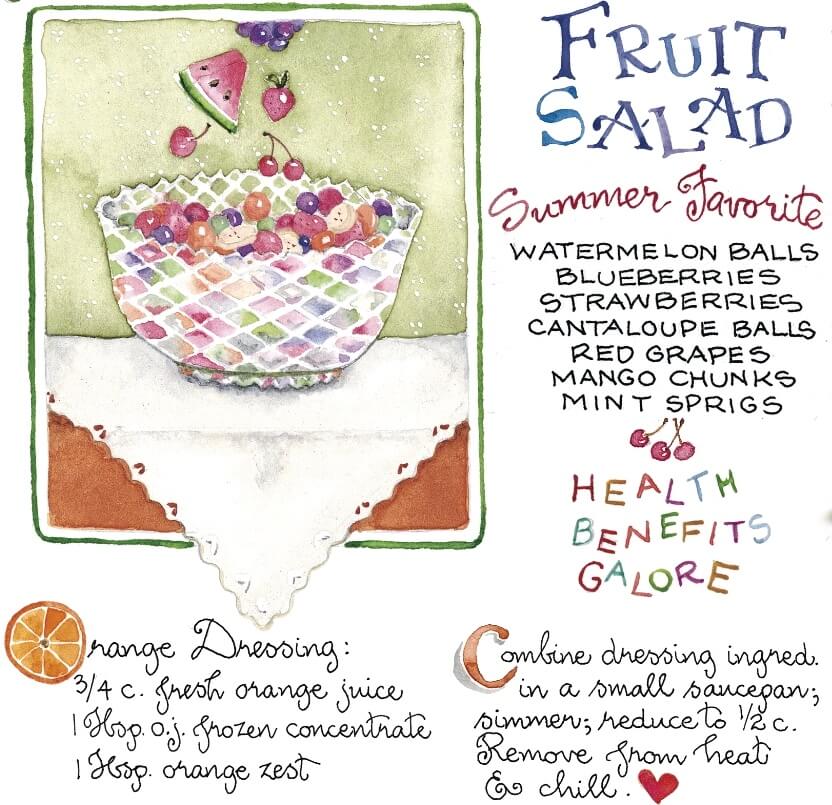 FRUIT
SALAD
Summer Favorite
WATERMELON BALLS
BLUEBERRIES
STRAWBERRIES
CANTALOUPE BALLS
RED GRAPES
MANGO CHUNKS
MINT SPRIGS
HEALTH
BENEFITS
GALORE
Orange Dressing:
3/4 c. fresh orange juice
1 Tbsp. o.j. frozen concentrate
1 Tbsp. orange zest
Combine dressing ingred.
in a small saucepan;
simmer; reduce to 1/2 c.
Remove from heat
& chill.